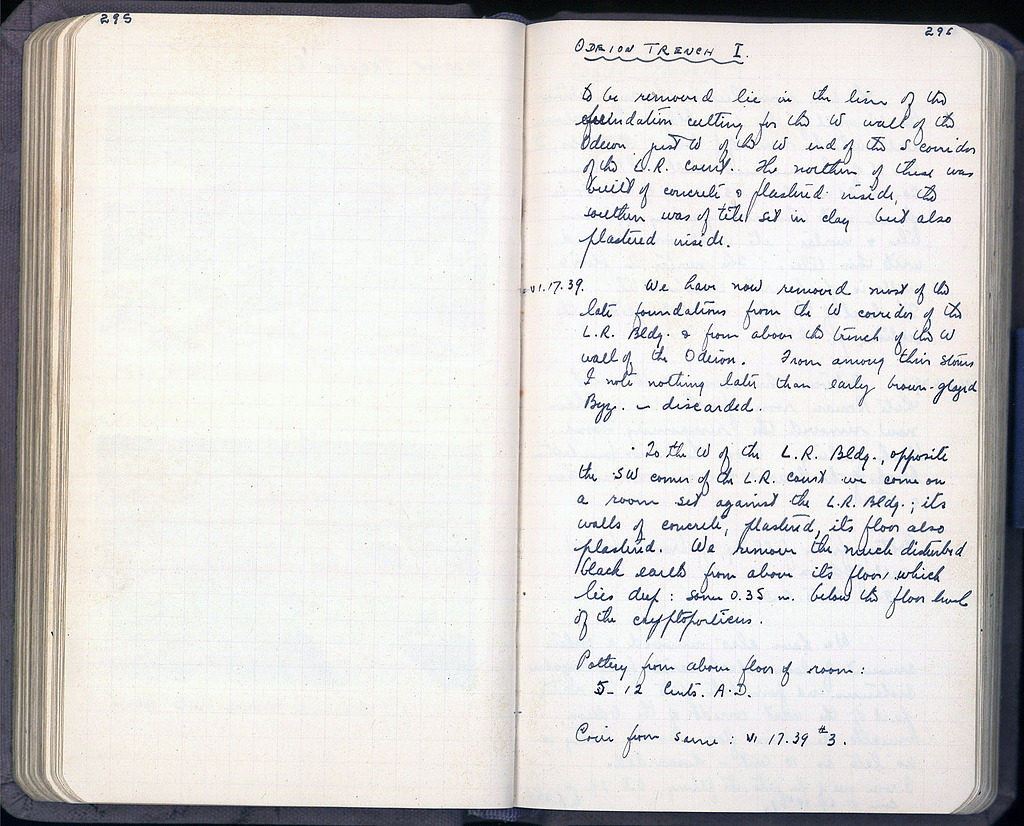 295
296
ODEION TRENCH I.
to be removed lie in the line of the
foundation cutting for the W wall of the
Odeion just W of the W end of the S corridor
of the L.R. Court. The northern of these was
built of concrete & plastered inside, the
southern was of tile set in clay but also
plastered inside.
VI.17.39. We have now removed most of the
late foundations from the W corridor of the
L.R. Bldg. & from above the trench of the W
wall of the Odeion. From among their stones
I note nothing later than early brown-glazed
Byz. — discarded.
To the W of the L.R. Bldg., opposite
the SW corner of the L.R. court we come on
a room set against the L.R. Bldg.; its
walls of concrete, plastered, its floor also
plastered. We remove the much disturbed
black earth from above its floor, which
lies deep: some 0.35 m. below the floor level
of the cryptoporticus.
Pottery from above floor of room:
5-12 Cents. A.D.
Coin from same: VI 17.39 #3.